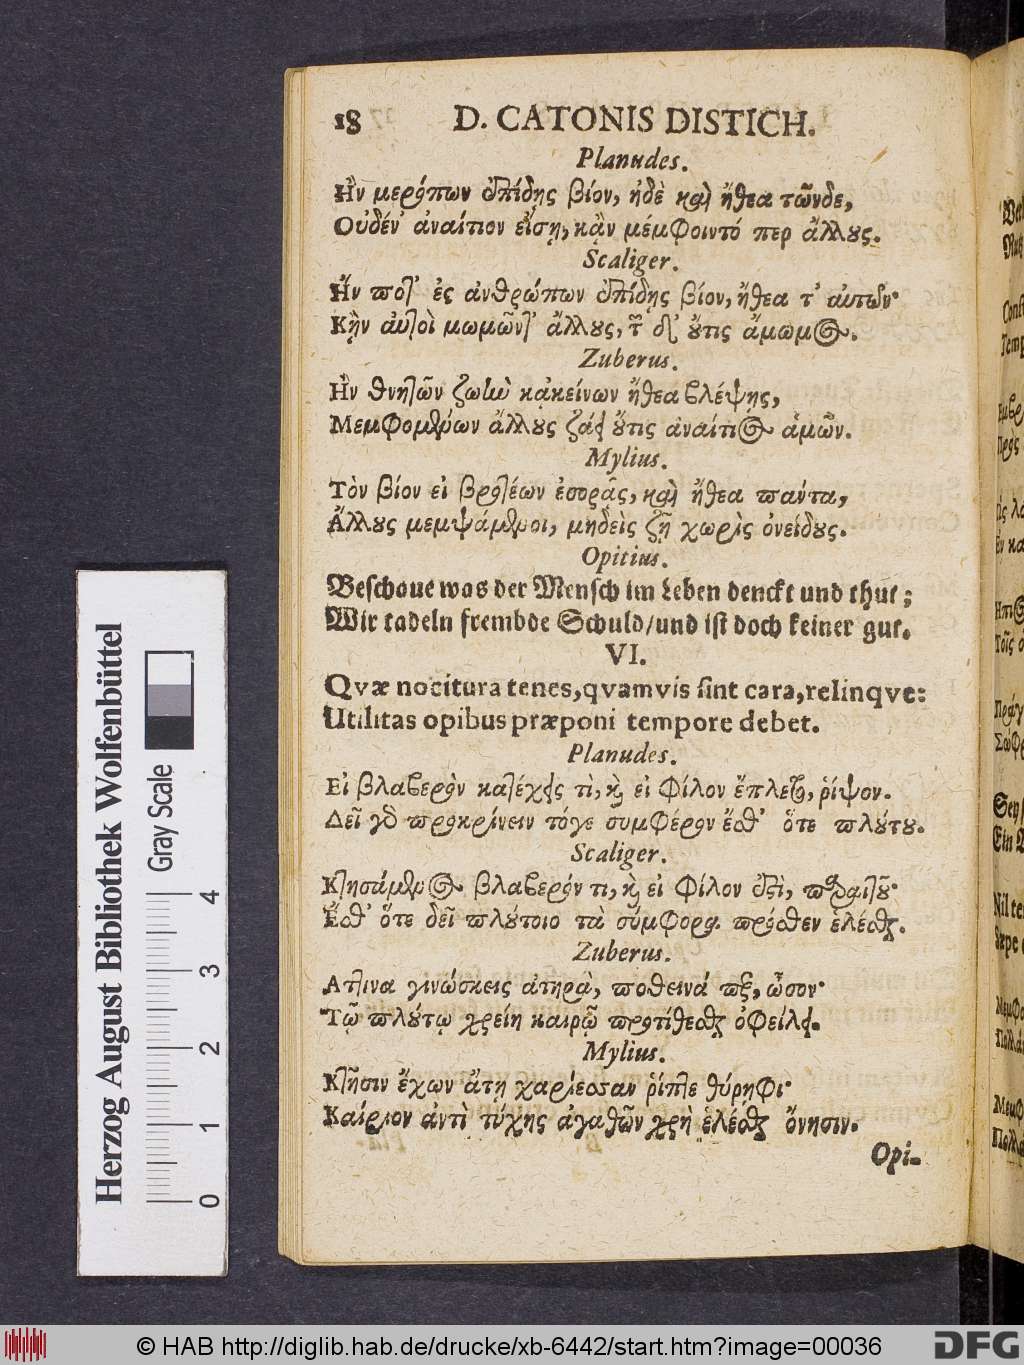 18 D. CATONIS DISTICH.
Planudes.
Ἢν μερόπων ἐπίδῃς βίον, ἠδὲ καὶ ἤθεα τῶνδε,
Οὐδέν' ἀναίτιον εἴσῃ, κᾂν μέμφοιντό περ ἄλλους.
Scaliger.
Ἤν ποτ' ἐς ἀνθρώπων ἐπίδῃς βίον, ἤθεα τ' αὐτῶν·
Κἢν αὐτοὶ μωμῶντ' ἄλλους, δ' οὔτις ἄμωμος.
Zuberus.
Ἢν θνητῶν ζωὴν κᾀκείνων ἤθεα βλέψῃς,
Μεμφομένων ἄλλους ζάει οὔτις ἀναίτιος ἁμῶν.
Mylius.
Τὸν βίον εἰ βροτέων ἐσορᾷς, καὶ ἤθεα πάντα,
Ἄλλους μεμψάμενοι, μηδεὶς ζῇ χωρὶς ὀνείδους.
Opitius.
Beschaue was der Mensch im Leben denckt und thut;
Wir tadeln frembde Schuld/und ist doch keiner gut.
VI.
Qvæ nocitura tenes,qvamvis sint cara,relinqve:
Utilitas opibus præponi tempore debet.
Planudes.
Εἰ βλαβερὸν κατέχεις τὶ, καὶ εἰ φίλον ἔπλετο, ῥίψον.
Δεῖ γὰρ προκρίνειν τόγε συμφέρον ἔσθ' ὅτε πλούτου.
Scaliger.
Κτησάμενος βλαβερόν τι, καὶ εἰ φίλον ἐστὶ, παραιτοῦ·
Ἔσθ' ὅτε δεῖ πλούτοιο τὰ σύμφορα πρόσθεν ἑλέσθαι.
Zuberus.
Ἅτινα γινώσκεις ἀτηρὰ, ποθεινά περ, ὦσον·
Τῷ πλούτῳ χρείη καιρῷ προτίθεσθαι ὀφείλει.
Mylius.
Κτῆσιν ἔχων ἄτῃ χαρίεσσαν ῥίπτε θύρηφι·
Καίριον ἀντὶ τύχης ἀγαθῶν χρὴ ἑλέσθαι ὄνησιν.
Opi-
Herzog August Bibliothek Wolfenbüttel
Gray Scale
0 1 2 3 4
© HAB http://diglib.hab.de/drucke/xb-6442/start.htm?image=00036
DFG